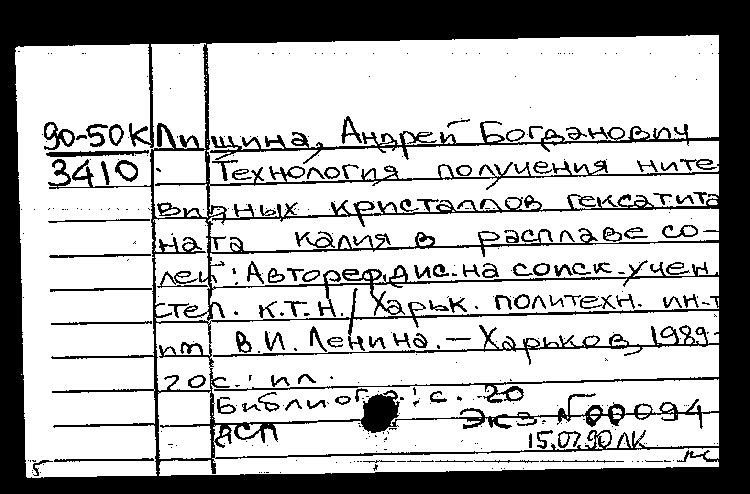 90-50К Лищина, Андрей Богданович
3410 Технология получения ните
видных кристаллов гексатита
ната калия в расплаве со-
лей: Автореф.дис.на соиск.учен.
степ. к.т.н./ Харьк. политехн. ин-т
им В.И. Ленина. — Харьков, 1989-
20с.: ил.
Библиогр.: с. 20
Экз. №00094
АСП
15.07.90 ЛК